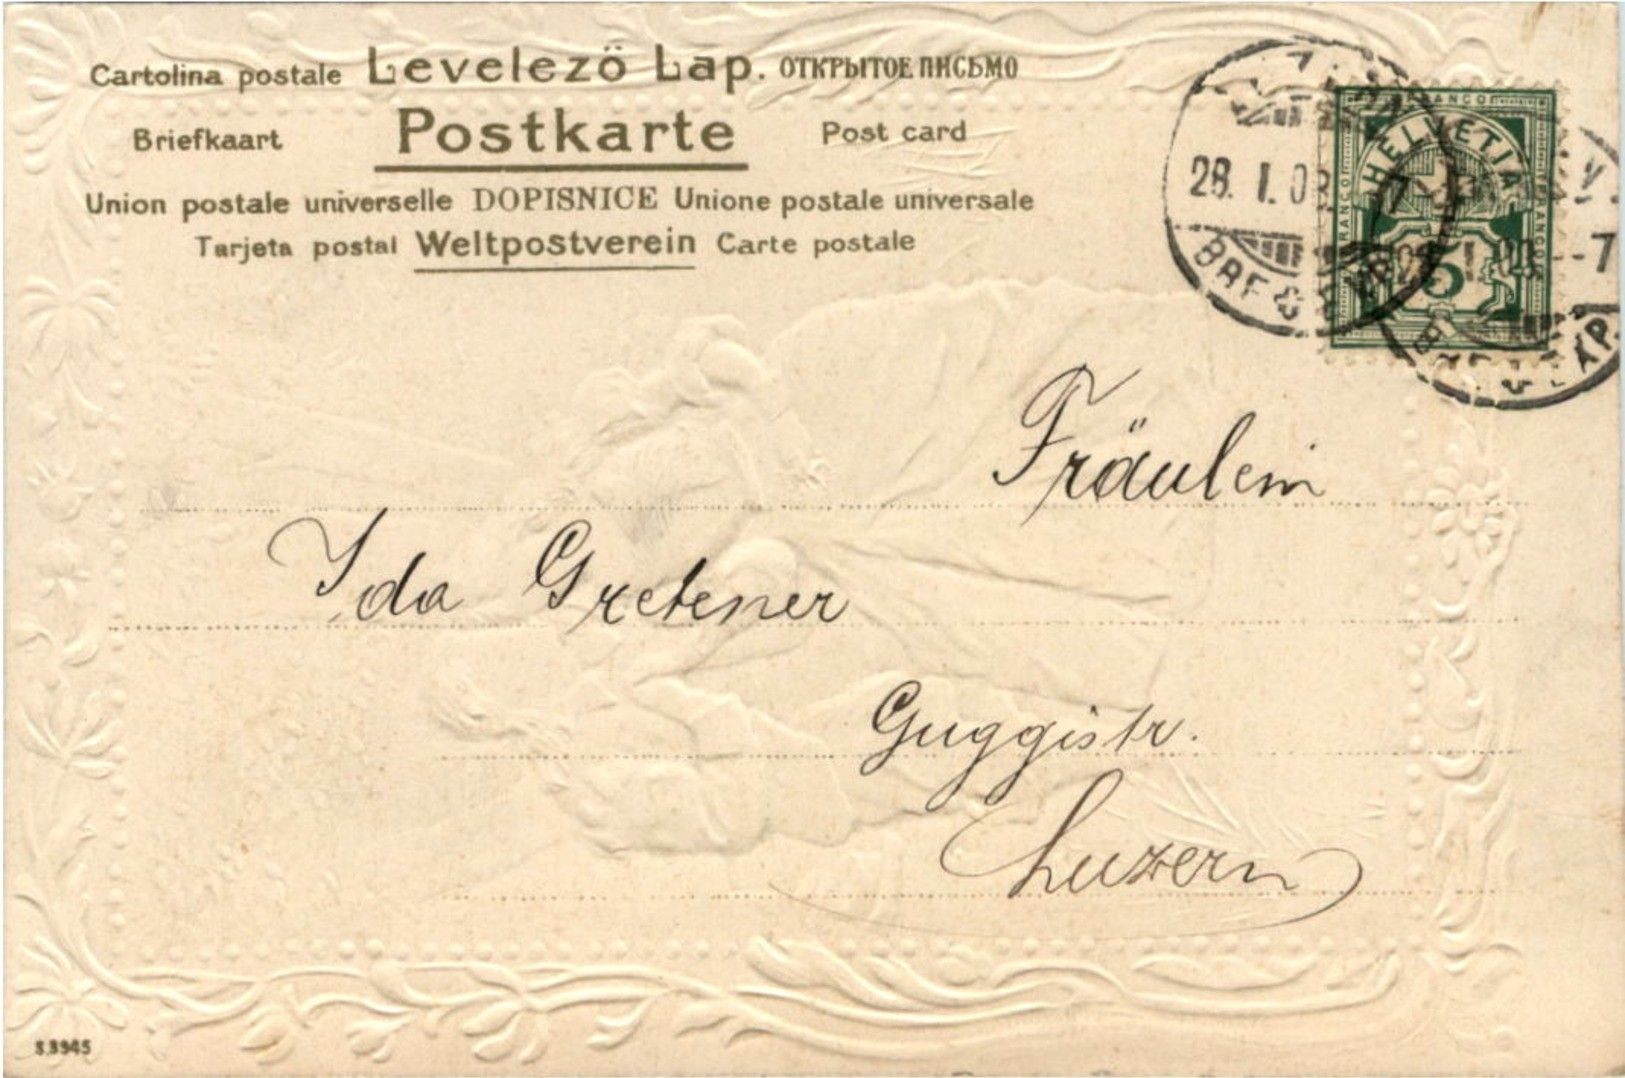 Cartolina postale Levelező Lap. ОТКРЫТОЕ ПИСЬМО
Briefkaart Postkarte Post card
Union postale universelle DOPISNICE Unione postale universale
Tarjeta postal Weltpostverein Carte postale
FRANCO
HELVETIA
FRANCO
FRANCO
5
28. I. 03
BRF
-7
Fräulein
Ida Gretener
Guggistr.
Luzern
S.3945